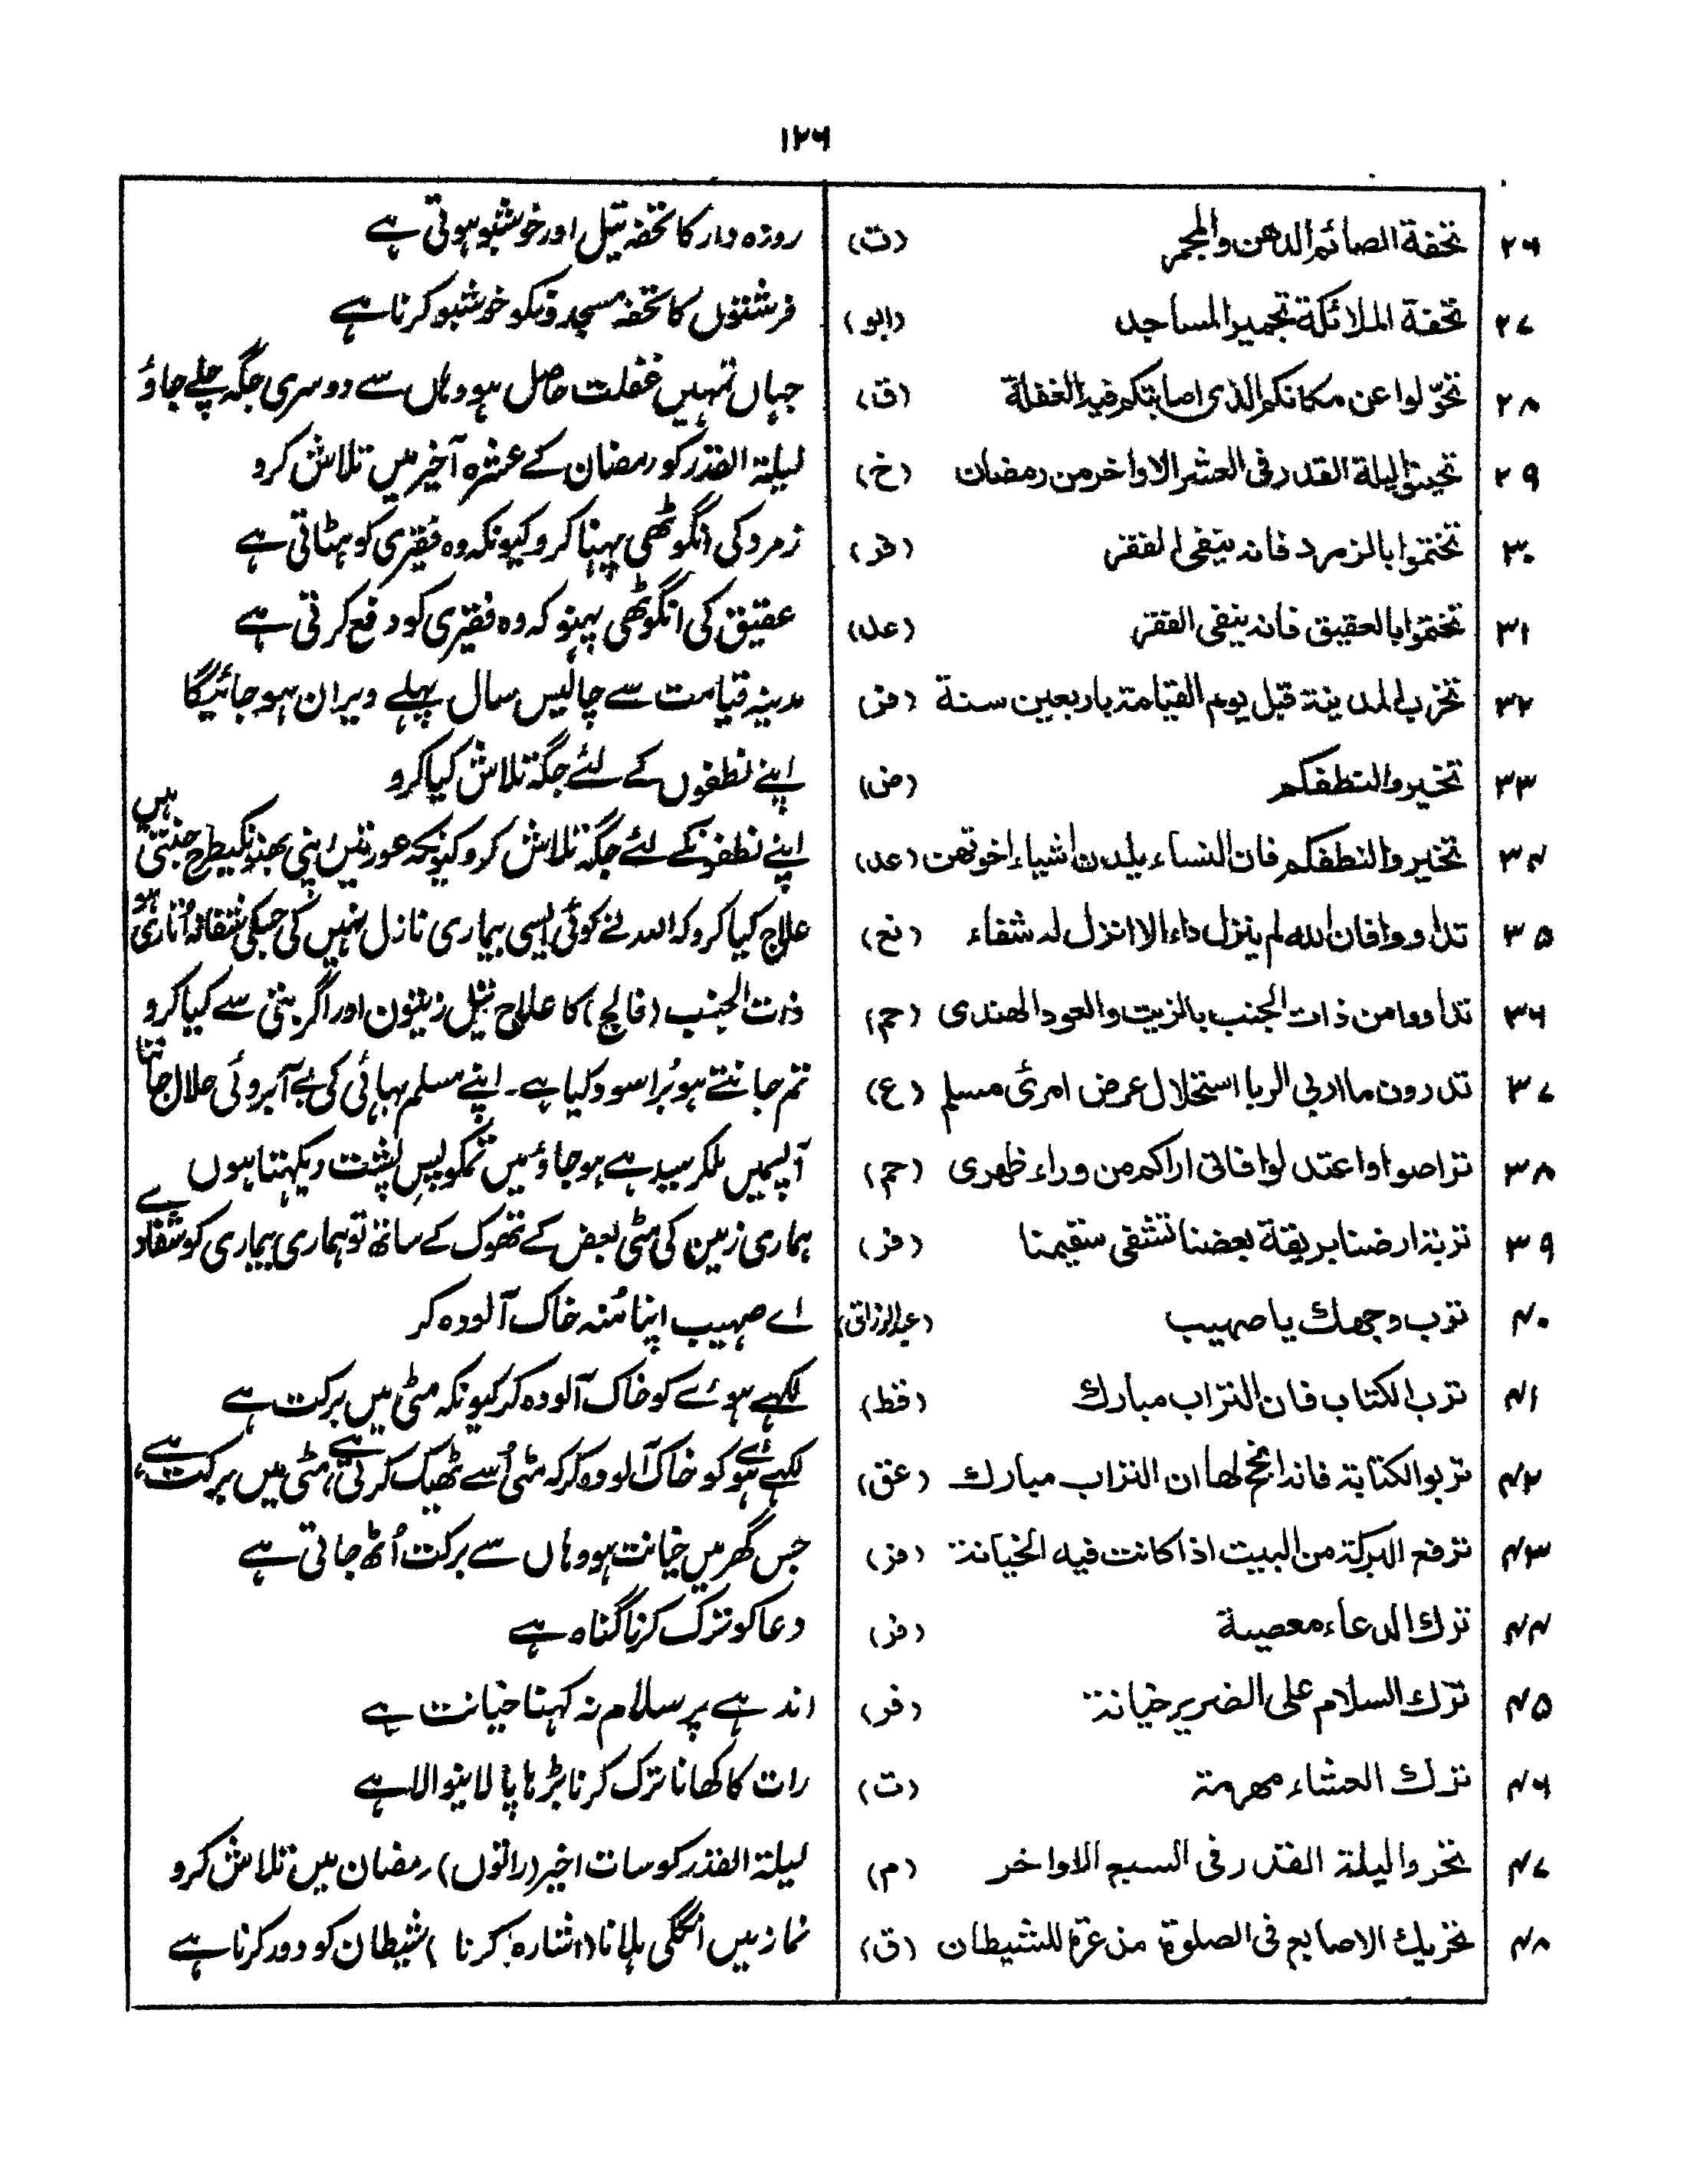 ۱۲۶
۲۶ تحفة الصائم الدهن والمجمر (ت) روزہ دار کا تحفہ تیل اور خوشبو ہوتی ہے
۲۷ تحفة الملائكة تجمير المساجد (ابو) فرشتوں کا تحفہ مسجدونکو خوشبو کرنا ہے
۲۸ تحوّلوا عن مكانكم الذى اصابتكم فيه الغفلة (ق) جہاں تمہیں غفلت حاصل ہو وہاں سے دوسری جگہ چلے جاؤ
۲۹ تحينوا ليلة القدر فى العشر الاواخر من رمضان (خ) لیلۃ القدر کو رمضان کے عشرہ آخیر میں تلاش کرو
۳۰ تختموا بالزمرد فانه ينفى الفقر (فر) زمرد کی انگوٹھی پہنا کرو کیونکہ وہ فقیری کو ہٹاتی ہے
۳۱ تختموا بالعقيق فانه ينفى الفقر (عد) عقیق کی انگوٹھی پہنو کہ وہ فقیری کو دفع کرتی ہے
۳۲ تخرب المدينة قبل يوم القيامة باربعين سنة (فر) مدینہ قیامت سے چالیس سال پہلے ویران ہو جائیگا
۳۳ تخيروا لنطفكم (ض) اپنے نطفوں کے لئے جگہ تلاش کیا کرو
۳۴ تخيروا لنطفكم فان النساء يلدن اشباه اخوتهن (عد) اپنے نطفونکے لئے جگہ تلاش کرو کیونکہ عورتیں اپنی بھنونکیطرح جنتی ہیں
۳۵ تداووا فان الله لم ينزل داء الا انزل له شفاء (نخ) علاج کیا کرو کہ اللہ نے کوئی ایسی بیماری نازل نہیں کی جسکی شفا نہ اُتاری ہو
۳۶ تداووا من ذات الجنب بالزيت والعود الهندى (حم) ذات الجنب (فالج) کا علاج تیل زیتون اور اگر بتی سے کیا کرو
۳۷ تدرون ما اربى الربا استحلال عرض امرئ مسلم (ع) تم جانتے ہو بُرا سود کیا ہے۔ اپنے مسلم بہائی کی بے آبروئی حلال جاننا
۳۸ تراصوا واعتدلوا فانى اراكم من وراء ظهرى (حم) آپسمیں ملکر سیدہے ہو جاؤ میں تمکو پسِ پُشت دیکہتا ہوں
۳۹ تربة ارضنا بريقة بعضنا تشفى سقيمنا (فر) ہماری زمین کی مٹی بعض کے تھوک کے ساتھ تو ہماری بیماری کو شفا دے
۴۰ ترب وجهك يا صهيب (عبدالرزاق) اے صہیب اپنا مُنہ خاک آلودہ کر
۴۱ ترب الكتاب فان التراب مبارك (قط) لکہے ہوئے کو خاک آلودہ کر کیونکہ مٹی میں برکت ہے
۴۲ تربوا الكتابة فانه انجح لها ان التراب مبارك (عق) لکہے ہوئے کو خاک آلودہ کر کہ مٹی اُسے ٹھیک کرتی ہے، مٹی میں برکت ہے
۴۳ ترفع البركة من البيت اذا كانت فيه الخيانة (فر) جس گھر میں خیانت ہو وہاں سے برکت اُٹھ جاتی ہے
۴۴ ترك الدعاء معصية (فر) دعا کو ترک کرنا گناہ ہے
۴۵ ترك السلام على الضرير خيانة (فر) اندہے پر سلام نہ کہنا خیانت ہے
۴۶ ترك العشاء مهرمة (ت) رات کا کھانا ترک کرنا بڑہاپا لانیوالا ہے
۴۷ تحروا ليلة القدر فى السبع الاواخر (م) لیلۃ القدر کو سات اخیر (راتوں) رمضان میں تلاش کرو
۴۸ تحريك الاصابع فى الصلوة مذعرة للشيطان (ق) نماز میں انگلی ہلانا (اشارہ کرنا) شیطان کو دور کرنا ہے